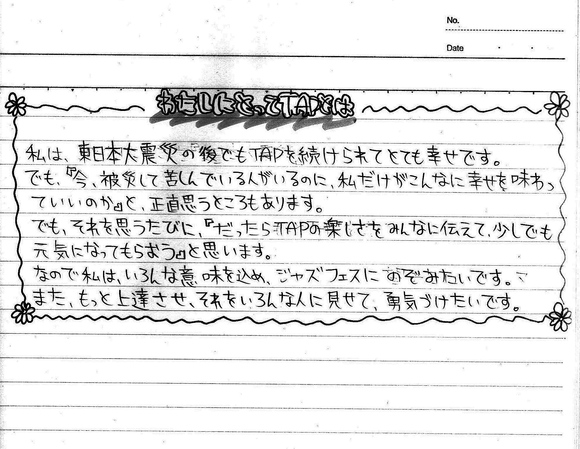 No.
Date
わたしにとってTAPとは
私は、東日本大震災の後でもTAPを続けられてとても幸せです。
でも、『今、被災して苦しんでいる人がいるのに、私だけがこんなに幸せを味わっ
ていいのか』と、正直思うところもあります。
でも、それを思うたびに、『だったらTAPの楽しさをみんなに伝えて、少しでも
元気になってもらおう』と思います。
なので私は、いろんな意味を込め、ジャズフェスにのぞみたいです。
また、もっと上達させ、それをいろんな人に見せて、勇気づけたいです。